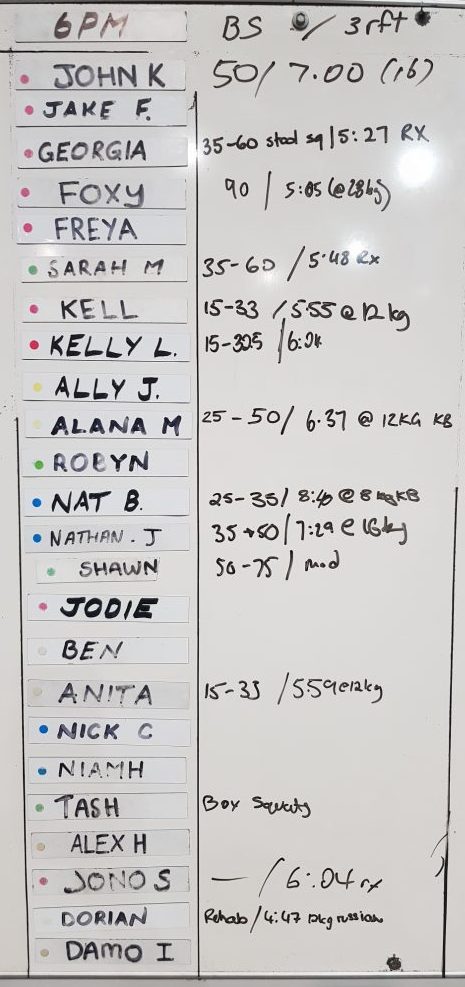 6PM BS / 3rft
JOHN K 50/ 7.00 (16)
JAKE F.
GEORGIA 35-60 stool sq / 5:27 RX
FOXY 90 / 5:05 (@28kg)
FREYA
SARAH M 35-60 / 5:48 Rx
KELL 15-33 / 5:55 @ 12kg
KELLY L. 15-325 /
ALLY J.
ALANA M 25-50/ 6.37 @ 12KG KB
ROBYN
NAT B. 25-35/ 8:40 @ 8 kg KB
NATHAN. J 35→50/ 7:29 @ 16kg
SHAWN 50-75 / mod
JODIE
BEN
ANITA 15-33 /559@12kg
NICK C
NIAMH
TASH Box Squats
ALEX H
JONO S — / 6:04 rx
DORIAN Rehab / 4:47 12kg russian
DAMO I